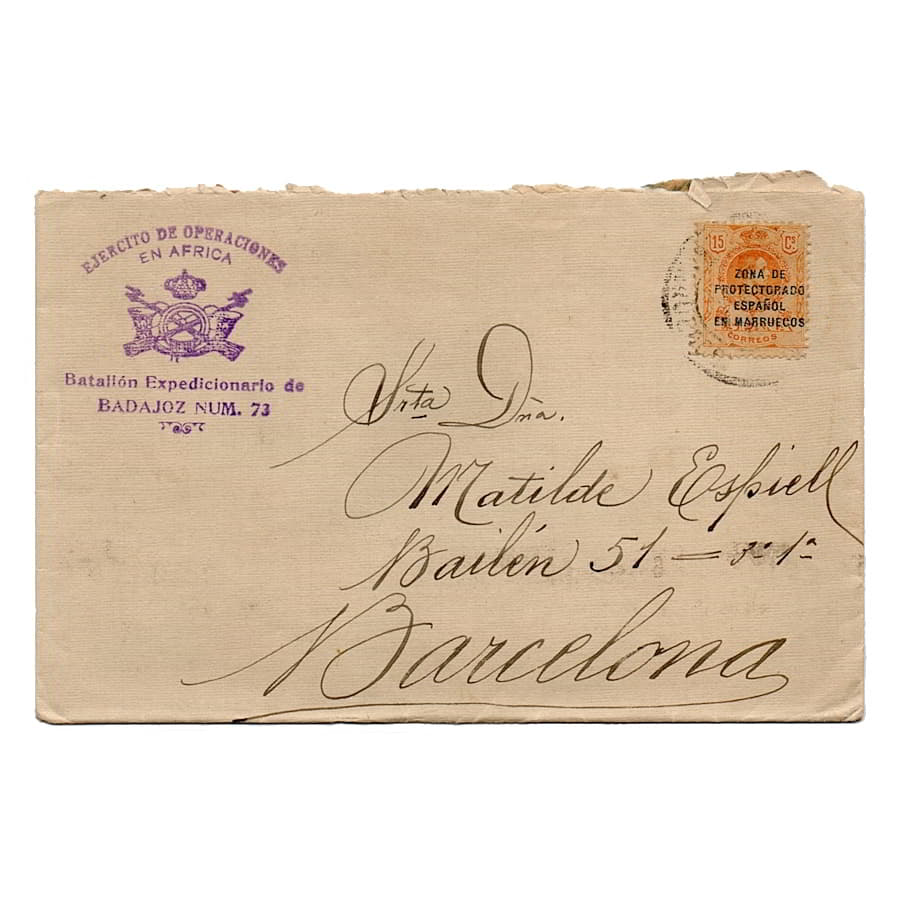 EJERCITO DE OPERACIONES
EN AFRICA
Batallón Expedicionario de
BADAJOZ NUM. 73
15 Cs
ZONA DE
PROTECTORADO
ESPAÑOL
EN MARRUECOS
CORREOS
Srta Dña.
Matilde Espiell
Bailén 51 = 3º 1ª
Barcelona